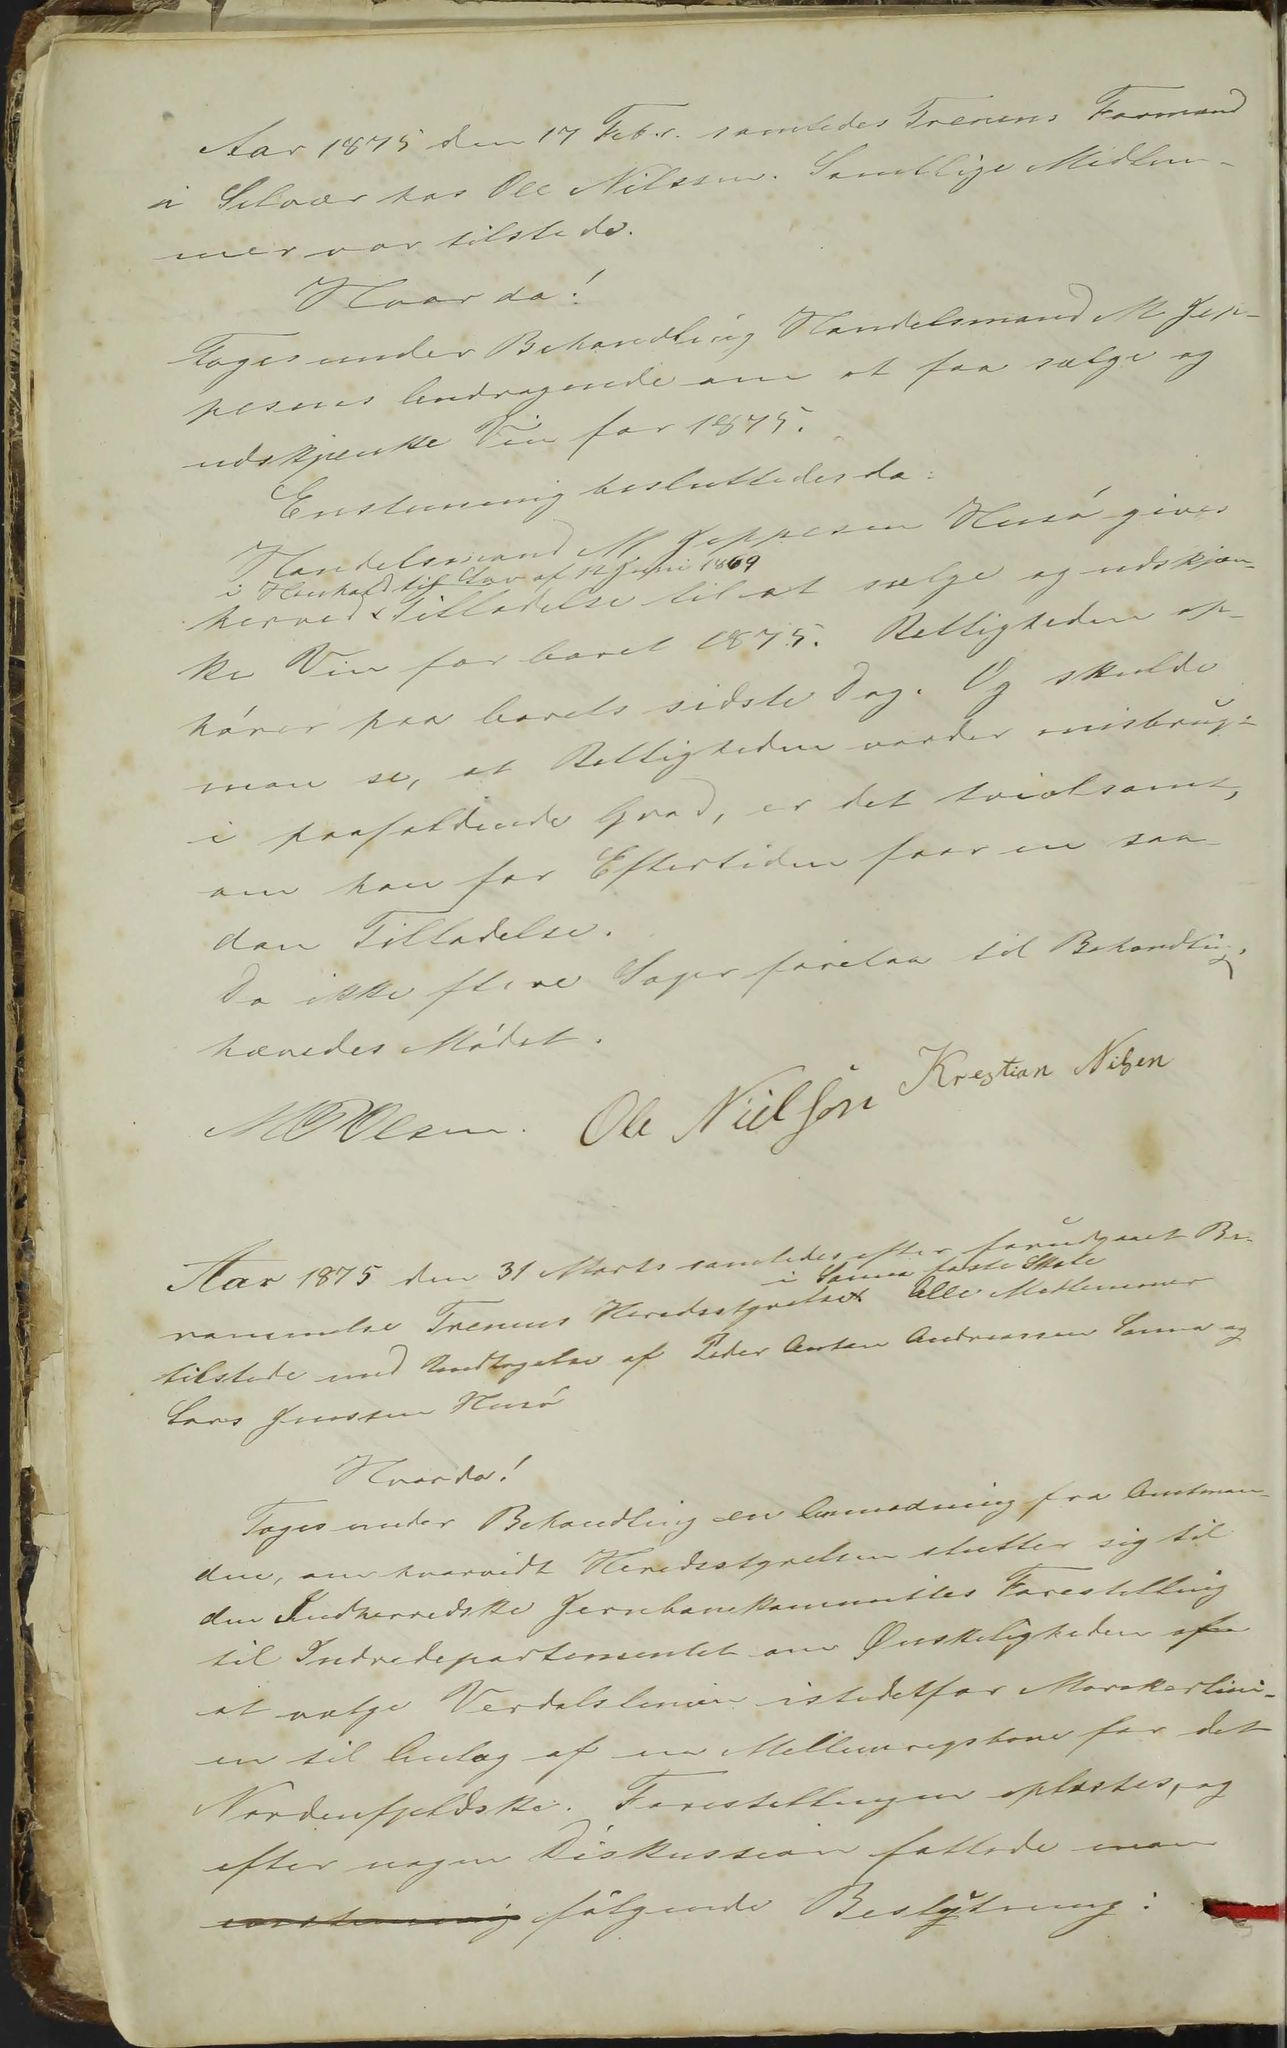 Aar 1875 den 17 Febr. samledes Trenens Formand
i Selvær hos Ole Nilssen. Samtlige Medlem-
mer var tilstede.
Hvor da!
Toges under Behandling Handelsmand M. Jep-
pesens Andragende om at faa sælge og
udskjenke Vin for 1875.
Enstemmig besluttedes da:
Handelsmand M. Jeppesen Husø gives
i Henhold til Lov af 12 Juni 1869
herved x Tilladelse til at sælge og udskjæn-
ke Vin for Aaret 1875. Rettigheden op-
hører paa Aarets sidste Dag. Og skulde
man se, at Rettigheden vorder misbrugt
i paafaldende Grad, er det tvivlsomt,
om han for Eftertiden faar en saa-
dan Tilladelse.
Da ikke flere Sager forelaa til Behandling,
hævedes Mødet.
Olsen. Ole Nielsøn Krestian Nilsen
Aar 1875 den 31 Marts samledes efter forudgaaet Be-
i Sanna faste Skole
rammelse Trenens Heredsstyrelse x Alle Medlemmer
tilstede med Undtagelse af Peder Anton Andreassen Sanna og
Lars Jenssen Husø
Hvorda!
Toges under Behandling en Anmodning fra Amtman-
den, om hvorvidt Heredsstyrelsen slutter sig til
den Indherredske Jernbanekommittes Forestilling
til Indredepartementet om Ønskeligheden af
at vælge Verdalslinien istedetfor Merakerlini-
en til Anlæg af en Mellemrigsbane for det
Nordenfjeldske. Forestillingen oplæstes, og
efter nogen Diskussion fattede man
enstemmig følgende Beslutning: